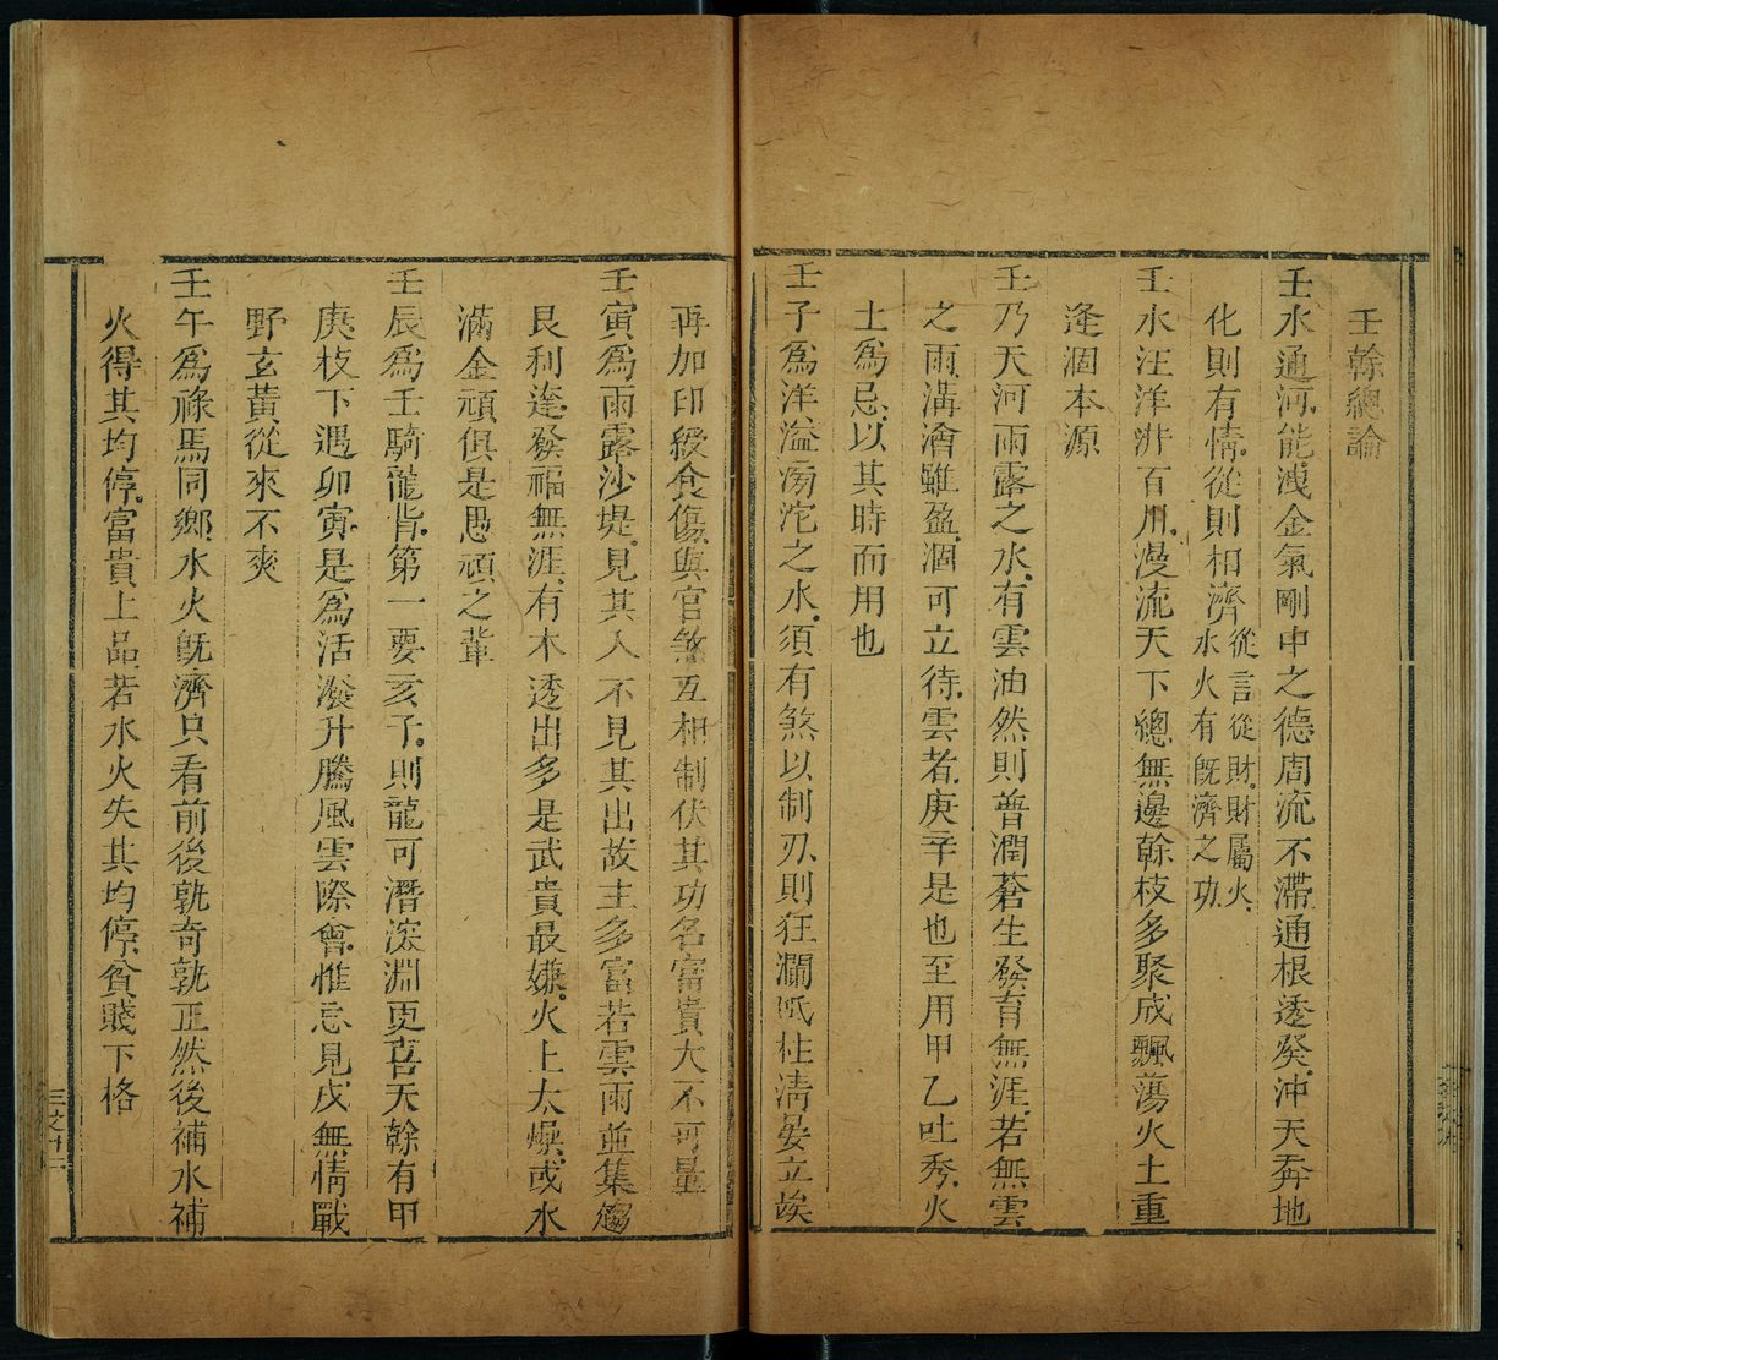 壬幹總論
壬水通河能洩金氣剛中之德周流不滯通根透癸沖天奔地
化則有情從則相濟從言從財財屬火水火有既濟之功
壬水汪洋湃百川漫流天下總無邊幹枝多聚成飄蕩火土重
逢涸本源
壬乃天河雨露之水有雲油然則普潤蒼生發育無涯若無雲
之雨溝澮雖盈涸可立待雲者庚辛是也至用甲乙吐秀火
土為忌以其時而用也
壬子為洋溢滂沱之水須有煞以制刃則狂瀾砥柱清晏立俟
再加印綬食傷與官煞互相制伏其功名富貴大不可量
壬寅為雨露沙堤見其入不見其出故主多富若雲雨並集
艮利達發福無涯有木透出多是武貴最嫌火上太燥或水
滿金頑俱是愚頑之輩
壬辰為壬騎龍背第一要亥子則龍可潛深淵更喜天幹有甲
庚枝下遇卯寅是為活潑升騰風雲際會惟忌見戌無情戰
野玄黃從來不爽
壬午為祿馬同鄉水火既濟只看前後孰奇孰正然後補水補
火得其均停富貴上品若水火失其均停貧賤下格